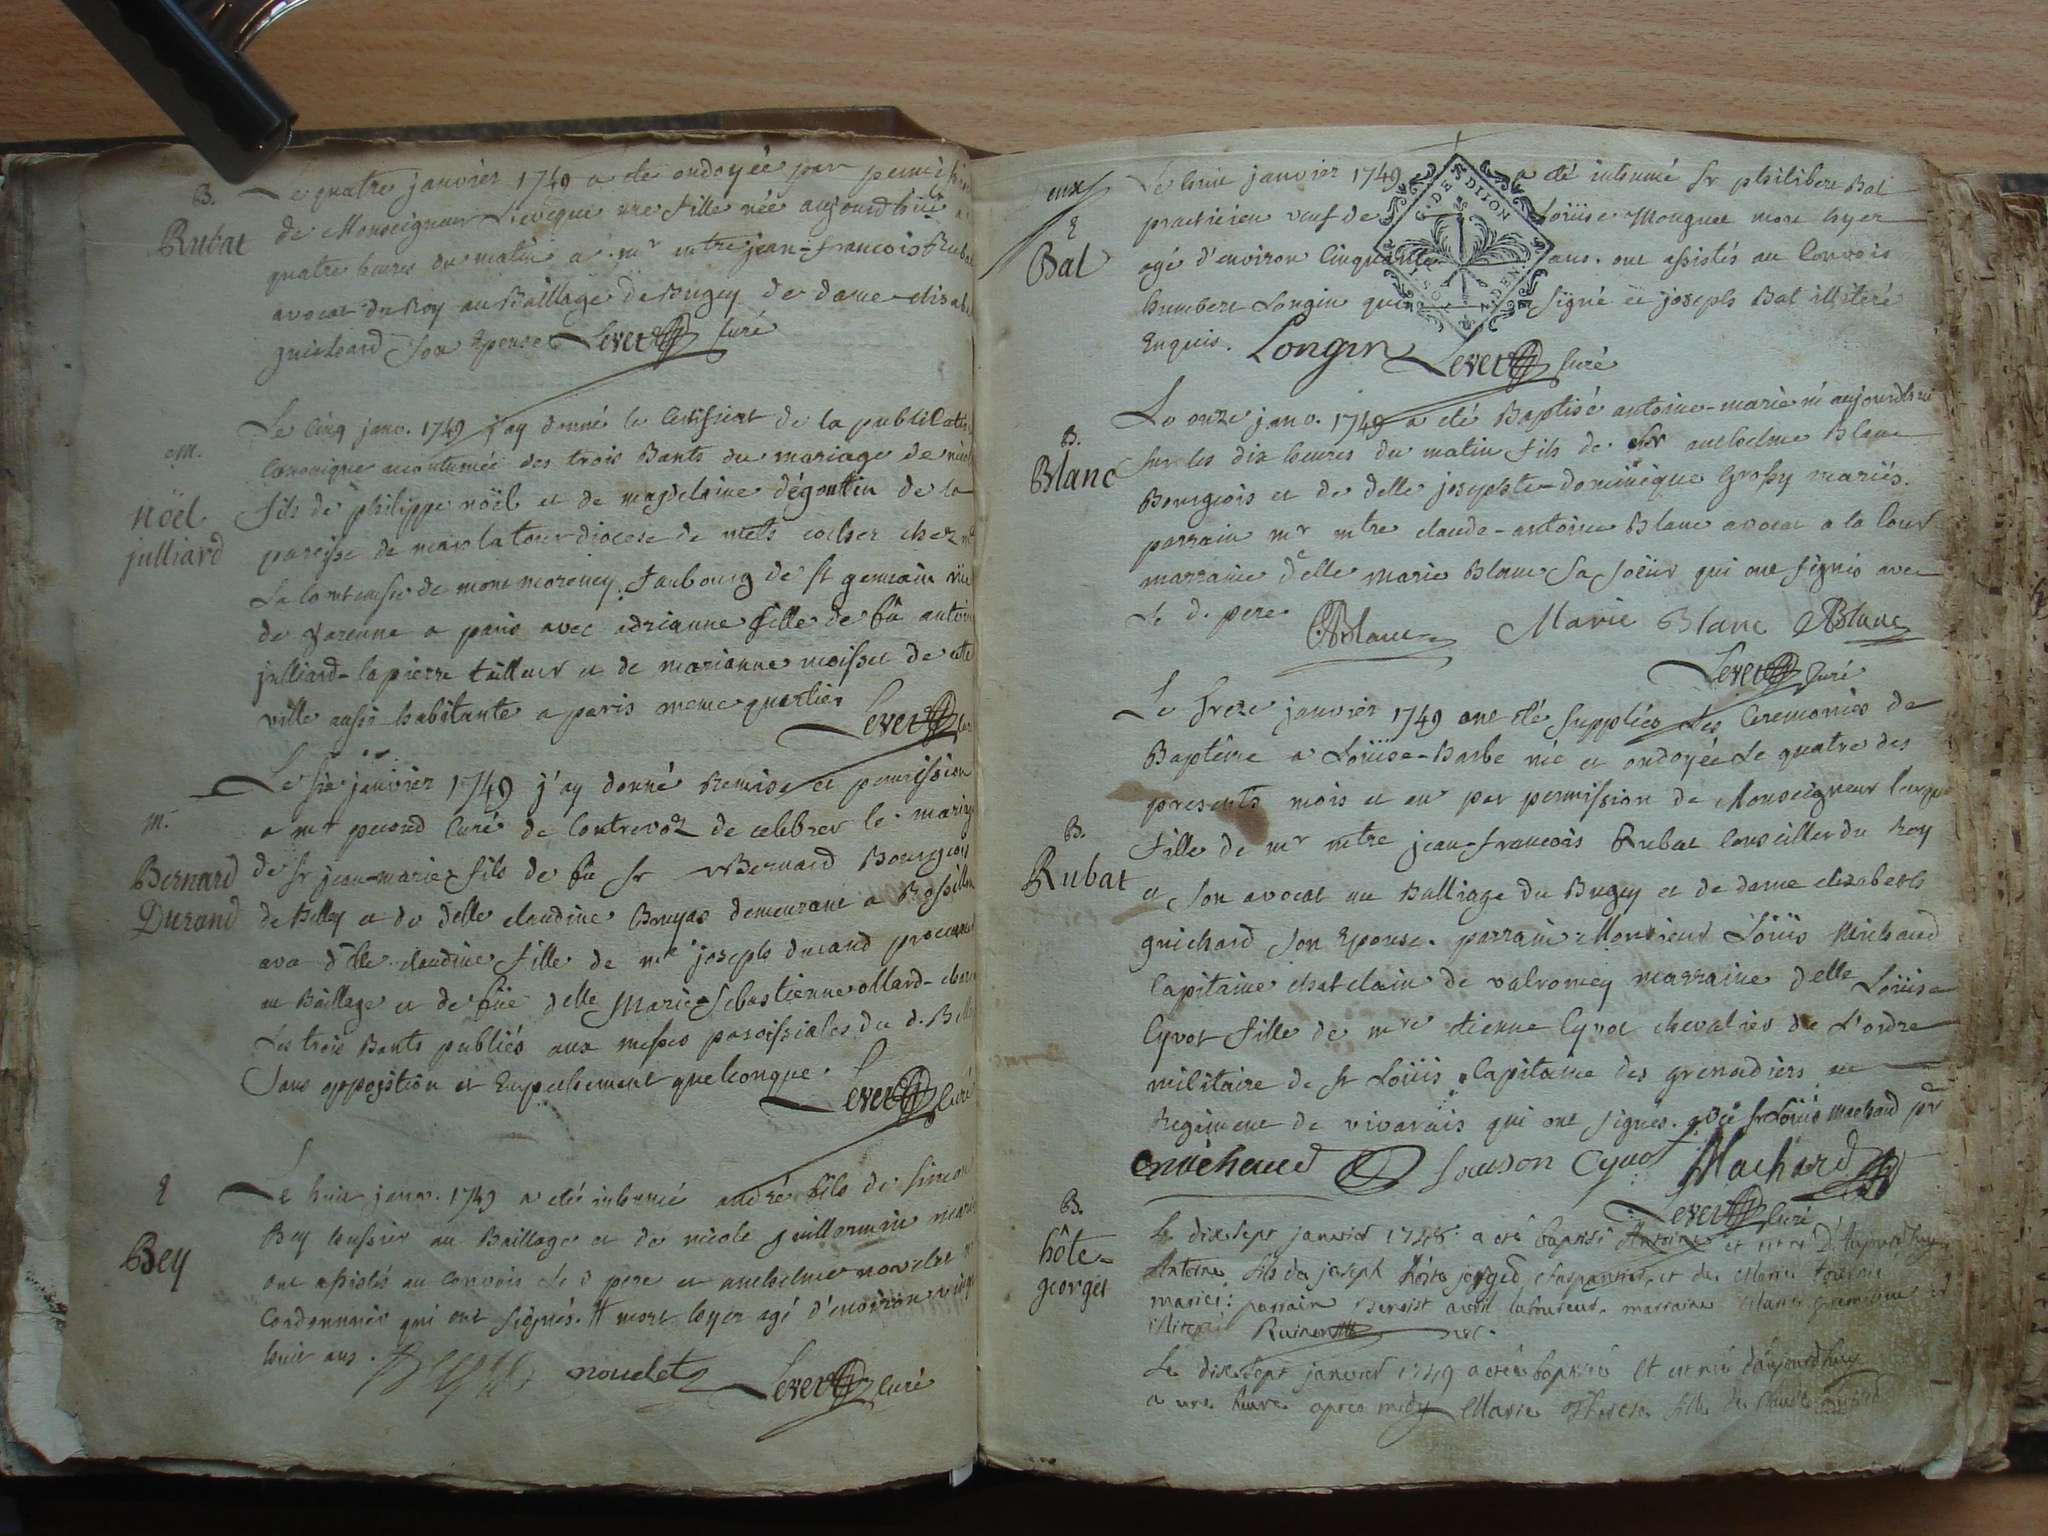 B.
Rubat
Le quatre janvier 1749 a été ondoyée par permission
de Monseigneur L'eveque une fille née aujourd'hui a
quatre heures du matin a mr mtre jean-francois Rubat
avocat du Roy au Baillage de Bugey de dame elisabeth
guichard son Epouse Levet Curé
m.
noël
julliard
Le Cinq janv. 1749 j'ay donné le Certificat de la publication
Canonique accoutumée des trois Bants du mariage de
fils de philippe noël et de magdelaine dégouttin de la
paroisse de mars la tour diocese de mets cocher chez
La Comtesse de mont morency faubourg de st germain rüe
de varenne a paris avec adrianne fille de fû antoine
julliard-lapierre tailleur et de marianne moisset de cette
ville aussi habitante a paris meme quartier Levet
m.
Bernard
Durand
Le six janvier 1749 j'ay donné Remise et permission
a mr pecond Curé de Contrevoz de celebrer le mariage
de sr jean-marie fils de fû sr Bernard Bourgeois
de Belley et de delle claudine Bruyas demeurant a Rossillon
avec delle claudine fille de mtre joseph durand procureur
au Baillage et de füe delle Marie-Sebastienne ollard
Les trois Bants publiés aux messes paroissiales du d. Belley
Sans opposition et Empechement quelconque.
Levet Curé
E
Bey
Le huit janv. 1749 a été inhumé andré fils de simon
Bey huissier au Baillage et de nicole guillermin mariés
ont assistés au Convois Le d pere et anthelme novelet
Cordonnier qui ont signés. Il mort hyer agé d'environ vingt
huit ans. Bey noudet Levet Curé
E
Bal
Le huit janvier 1749 a été inhumé sr philibert Bal
practicien veuf de Loüise Monguet mort hyer
agé d'environ Cinquante ans. ont assistés au Convois
humbert Longin qui a signé et joseph Bal illiteré
Enquis. Longin Levet Curé
G. DE DIJON
B.
Blanc
Le onze janv. 1749 a été Baptisé antoine-marie né aujourdhui
sur les dix heures du matin fils de sr anthelme Blanc
Bourgeois et de delle josephte-dominique Grossy mariés.
parrain mr mtre claude-antoine Blanc avocat a la Cour
marraine delle marie Blanc sa soeur qui ont signés avec
Le d. pere. Blanc Marie Blanc Blanc
Levet Curé
B.
Rubat
Le treze janvier 1749 ont été supplées les Ceremonies de
Baptême a Loüise-Barbe née et ondoyée Le quatre des
presents mois et an par permission de Monseigneur
fille de mr mtre jean-francois Rubat Conseiller du Roy
et son avocat au Balliage du Bugey et de dame elisabeth
guichard son Epouse. parrain Monsieur Loüis Michaud
Capitaine chatelain de valromey marraine delle Loüise
Cyvot fille de mre etienne Cyvot chevalier de L'ordre
militaire de st Loüis Capitaine des grenadiers au
Regiment de vivarais qui ont signés. avec sr Loüis machard
Michaud Cyvot Machard
Levet Curé
B.
hôte-
georges
Le dix sept janvier 1748 a eté baptisé Antoine et est né D'aujourdhuy
Antoine fils de joseph hôte et de
mariés: parrain Benoist laboureur. marraine
illiterés
Le dix sept janvier 1749 a eté baptisée et est née d'aujourdhuy
a une heure apres midy Marie Therese fille de Claude